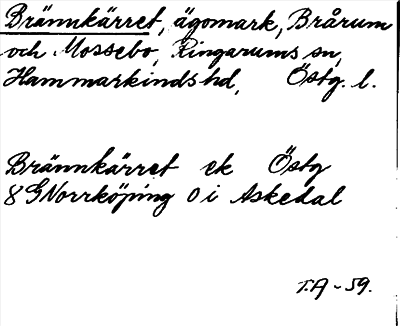 Brännkärret, ägomark, Brårum
och Mossebo, Ringarums sn,
Hammarkinds hd, Östg. l.
Brännkärret ek Östg
8G Norrköping 0 i Askedal
T.A - 59.